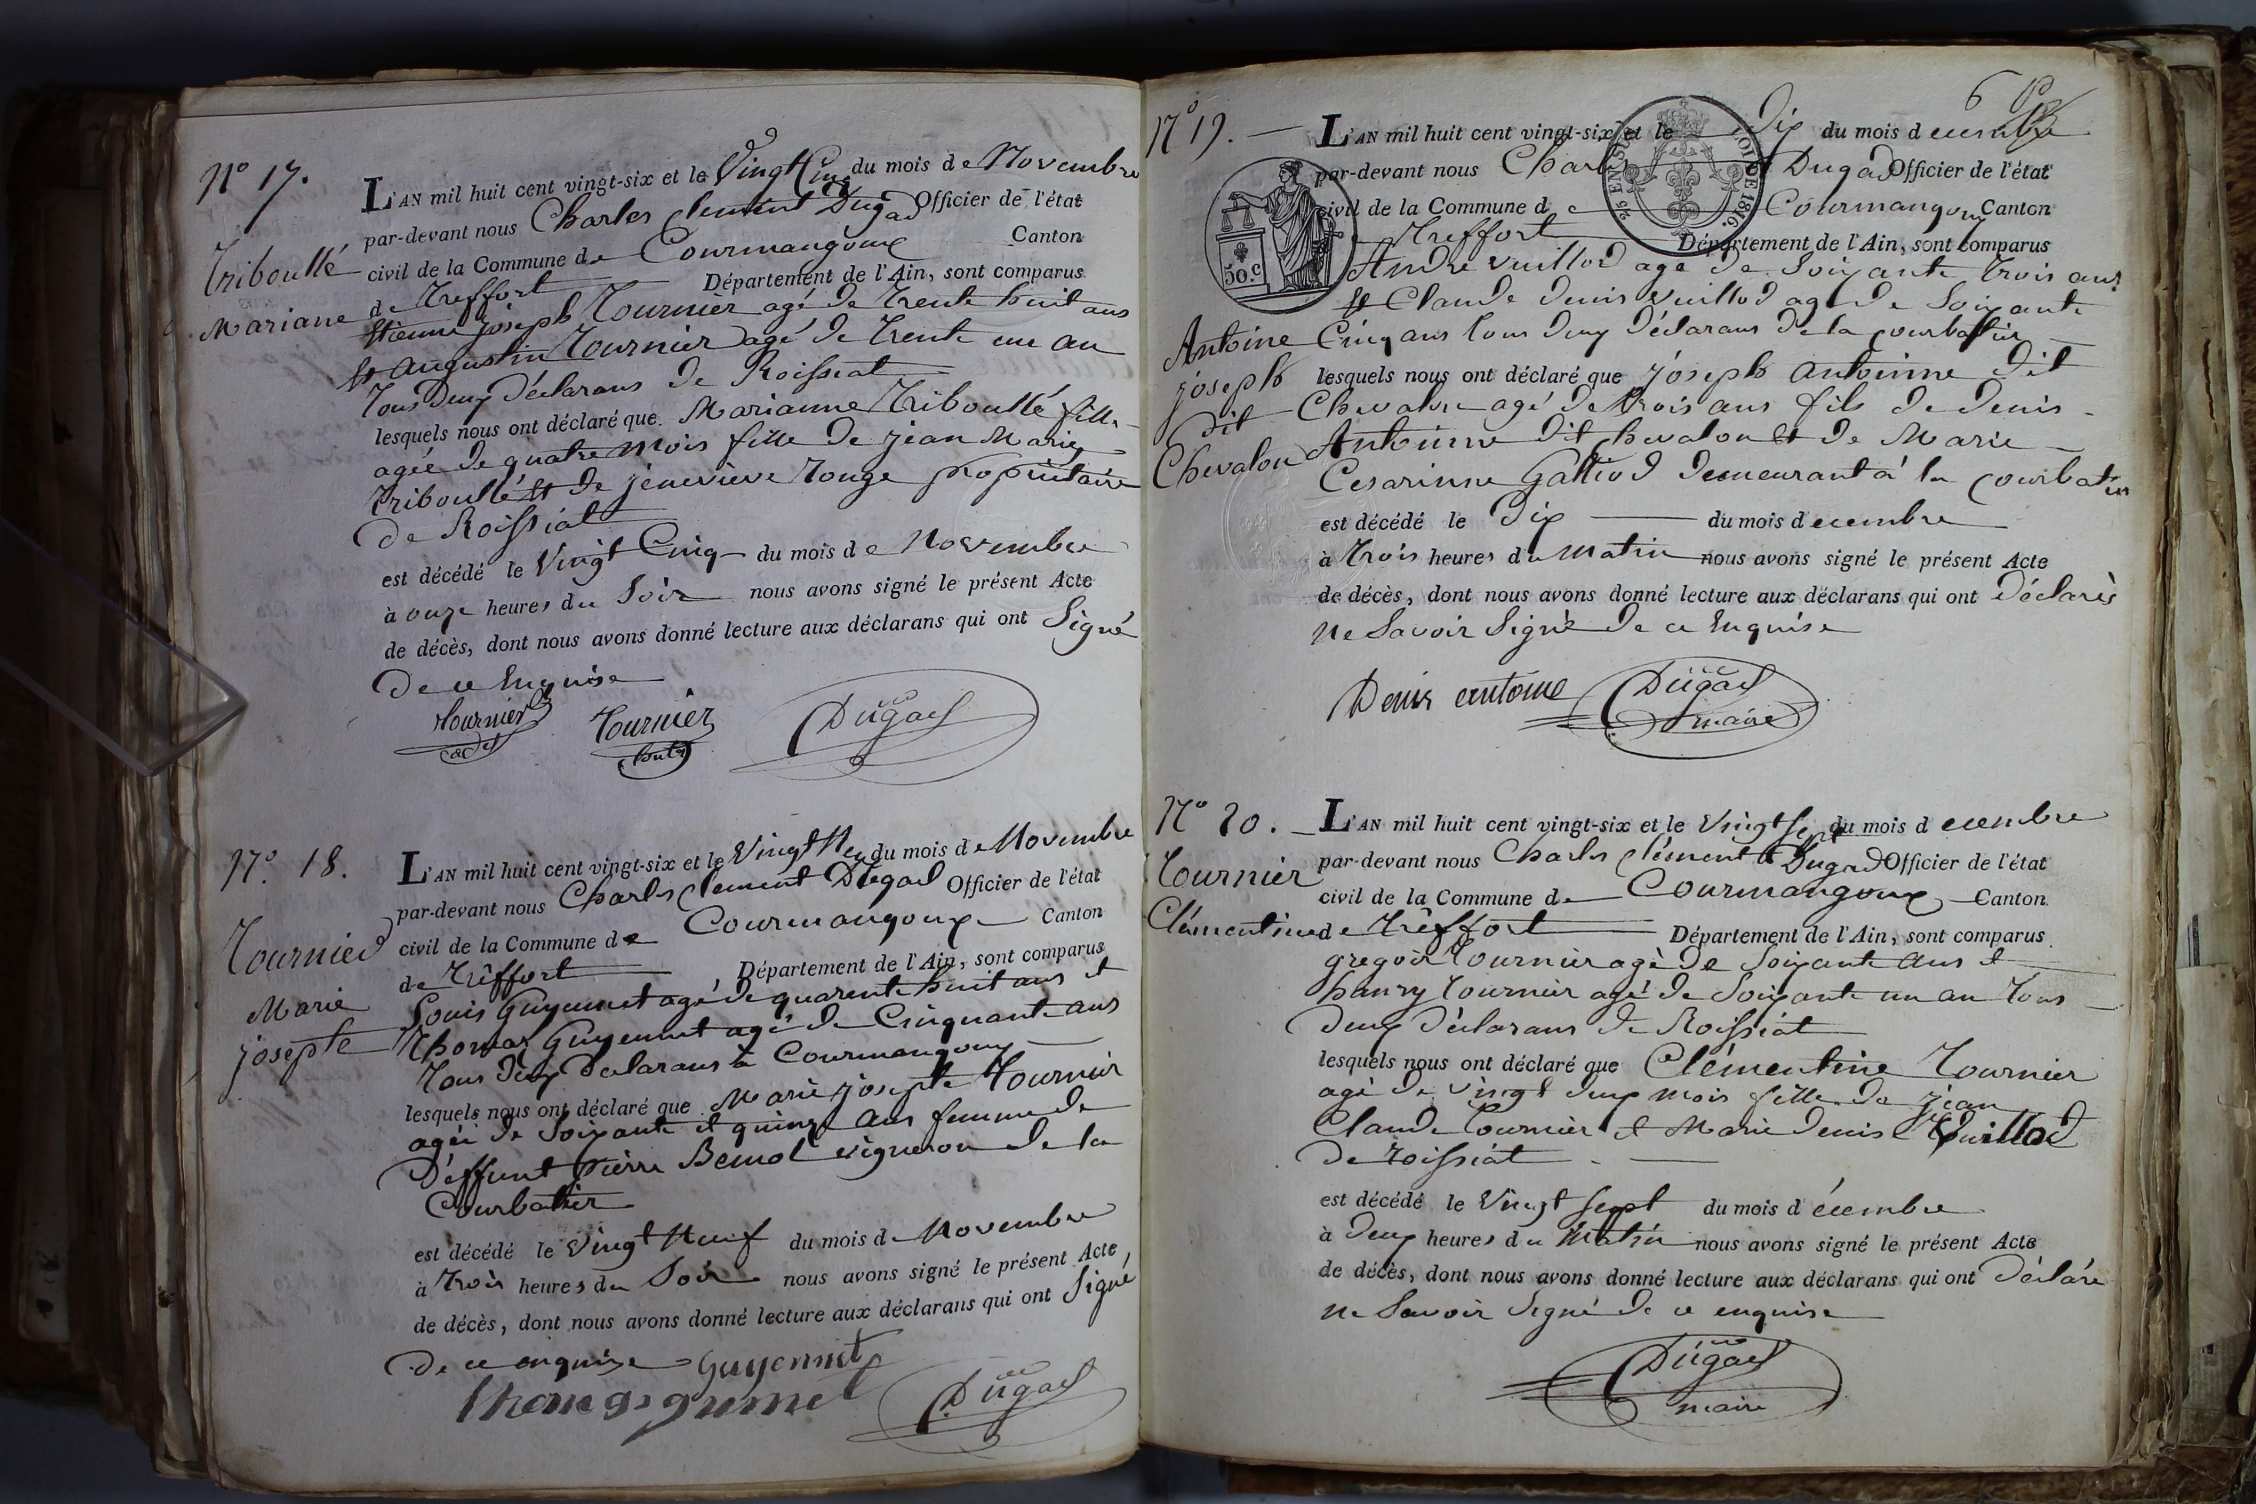 N° 17.
Triboullé
Mariane
L'AN mil huit cent vingt-six et le Vingt Cinq du mois de Novembre
par-devant nous Charles Clement Dugad Officier de l'état
civil de la Commune de Courmangoux Canton
de Treffort Département de l'Ain, sont comparus
Etienne joseph Tournier agé de trente huit ans
et augustin Tournier agé de trente un an
tous deux déclarans de Roissiat
lesquels nous ont déclaré que Marianne Triboullé fille
agée de quatre mois fille de jean Marie
Triboullé et de jenevieve rouge propriétaire
de Roissiat
est décédé le Vingt Cinq du mois de Novembre
à onze heures du Soir nous avons signé le présent Acte
de décès, dont nous avons donné lecture aux déclarans qui ont Signé
de ce Enquise
Tournier Tournier Dugad
N° 18.
Tournier
Marie
josephte
L'AN mil huit cent vingt-six et le Vingt Neuf du mois de Novembre
par-devant nous Charles Clement Dugad Officier de l'état
civil de la Commune de Courmangoux Canton
de Tréffort Département de l'Ain, sont comparus
Louis Guyennet agé de quarente huit ans et
Thomas Guyennet agé de Cinquante ans
tous deux déclarans à Courmangoux
lesquels nous ont déclaré que Marie josephte Tournier
agée de Soixante et quinze ans femme de
Déffunt pierre Bemol vigneron de la
Courbatier
est décédé le vingt Neuf du mois de Novembre
à trois heures du Soir nous avons signé le présent Acte
de décès, dont nous avons donné lecture aux déclarans qui ont Signé
de ce enquise Guyennet
Dugad
N° 19.
Antoine
joseph
dit
Chevalon
6
L'AN mil huit cent vingt-six et le Dix du mois decembre
par-devant nous Charles Dugad Officier de l'état
civil de la Commune de Courmangoux Canton
de Treffort Département de l'Ain, sont comparus
50.C
LOI DE 1816.
André vuillod agé de Soixante trois ans
et Claude denis vuillod agé de Soixante
Cinq ans tous deux déclarans de la courbatier
lesquels nous ont déclaré que joseph antoinne dit
Chevalon agé de trois ans fils de denis
Antoinne dit chevalon et de Marie
Cesarinne Galliod demeurant à la courbatier
est décédé le Dix du mois decembre
à trois heures du Matin nous avons signé le présent Acte
de décès, dont nous avons donné lecture aux déclarans qui ont Déclarès
Ne Savoir Signè de ce Enquise
Denis antoine Dugad
maire
N° 20.
Tournier
Clémentine
L'AN mil huit cent vingt-six et le Vingt Sept du mois decembre
par-devant nous Charles Clément Dugad Officier de l'état
civil de la Commune de Courmangoux Canton
de Tréffort Département de l'Ain, sont comparus
gregoir Tournier agè de Soixante ans et
hanry Tournier agé de Soixante un an tous
deux dèclarans de Roissiat
lesquels nous ont déclaré que Clémentine Tournier
agé de vingt deux mois fille de jean
Claude Tournier et Marie denise Vuillod
de roissiat
est décédé le Vingt Sept du mois décembre
à deux heures du Matin nous avons signé le présent Acte
de décès, dont nous avons donné lecture aux déclarans qui ont Déclaré
Ne Savoir Signé de ce enquise
Dugad
maire